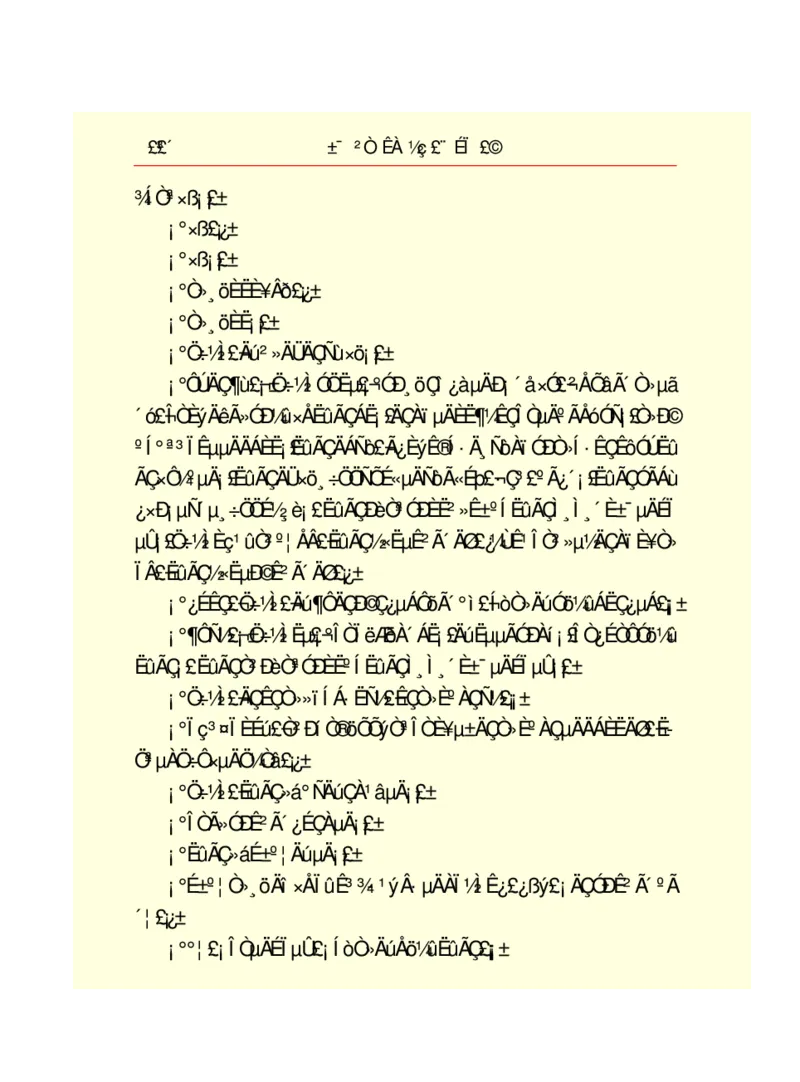 ££´ ±¯ ²Ò ÊÀ ½ç £¨ ÉÏ £©
¾ÍÒª×ß¡£¡±
¡°×ß£¿¡±
¡°×ß¡£¡±
¡°Ò»¸öÈËÈ¥Âð£¿¡±
¡°Ò»¸öÈË¡£¡±
¡°Ö÷½Ì£¬Äú²»ÄÜÄÇÑù×ö¡£¡±
¡°ÔÚÄÇ¶ù£¬¡±Ö÷½ÌÓÖËµ£¬¡°ÓÐ¸öÇî¿àµÄÐ¡´å×Ó£¬²ÅÕâÃ´Ò»µã
´ó£¬ÎÒÈýÄêÃ»ÓÐ¼û×ÅËûÃÇÁË¡£ÄÇÀïµÄÈË¶¼ÊÇÎÒµÄºÃÅóÓÑ¡£Ò»Ð©
ºÍ°ª³ÏÊµµÄÄÁÈË¡£ËûÃÇÄÁÑò£¬Ã¿ÈýÊ®Í·Ä¸ÑòÀïÓÐÒ»Í·ÊÇÊôÓÚËû
ÃÇ×Ô¼ºµÄ¡£ËûÃÇÄÜ×ö¸÷ÖÖÑÕÉ«µÄÑòÃ«Éþ£¬Ç³£ºÃ¿´¡£ËûÃÇÓÃÁù
¿×Ð¡µÑ´µ¸÷ÖÖÉ½¸è¡£ËûÃÇÐèÒªÓÐÈË²»Ê±ºÍËûÃÇÌ¸Ì¸´È±¯µÄÉÏ
µÛ¡£Ö÷½ÌÈç¹ûÒ²º¦ÅÂ£¬ËûÃÇ½«ËµÊ²Ã´ÄØ£¿¼ÙÊ¹ÎÒ²»µ½ÄÇÀïÈ¥Ò»
ÏÂ£¬ËûÃÇ½«ËµÐ©Ê²Ã´ÄØ£¿¡±
¡°¿ÉÊÇ£¬Ö÷½Ì£¬Äú¶ÔÄÇÐ©Ç¿µÁÔõÃ´°ì£¡ÍòÒ»ÄúÓö¼ûÁËÇ¿µÁ£¡¡±
¡°¶ÔÑ½£¬¡±Ö÷½ÌËµ£¬¡°ÎÒÏëÆðÀ´ÁË¡£ÄúËµµÃÓÐÀí¡£ÎÒ¿ÉÒÔÓö¼û
ËûÃÇ¡£ËûÃÇÒ²ÐèÒªÓÐÈËºÍËûÃÇÌ¸Ì¸´È±¯µÄÉÏµÛ¡£¡±
¡°Ö÷½Ì£¬ÄÇÊÇÒ»»ïÍÁ·ËÑ½£¬ÊÇÒ»ÈºÀÇÑ½£¡¡±
¡°Ïç³¤ÏÈÉú£¬Ò²ÐíÒ®öÕÕýÒªÎÒÈ¥µ±ÄÇÒ»ÈºÀÇµÄÄÁÈËÄØ£¬Ë­
ÖªµÀÖ÷Ô×µÄÖ¼Òâ£¿¡±
¡°Ö÷½Ì£¬ËûÃÇ»á°ÑÄúÇÀ¹âµÄ¡£¡±
¡°ÎÒÃ»ÓÐÊ²Ã´¿ÉÇÀµÄ¡£¡±
¡°ËûÃÇ»áÉ±º¦ÄúµÄ¡£¡±
¡°É±º¦Ò»¸öÄî×ÅÏûÊ³¾­¹ýÂ·µÄÀÏ½ÌÊ¿£¿ßý£¡ÄÇÓÐÊ²Ã´ºÃ
´¦£¿¡±
¡°°¦£¡ÎÒµÄÉÏµÛ£¡ÍòÒ»ÄúÅö¼ûËûÃÇ£¡¡±